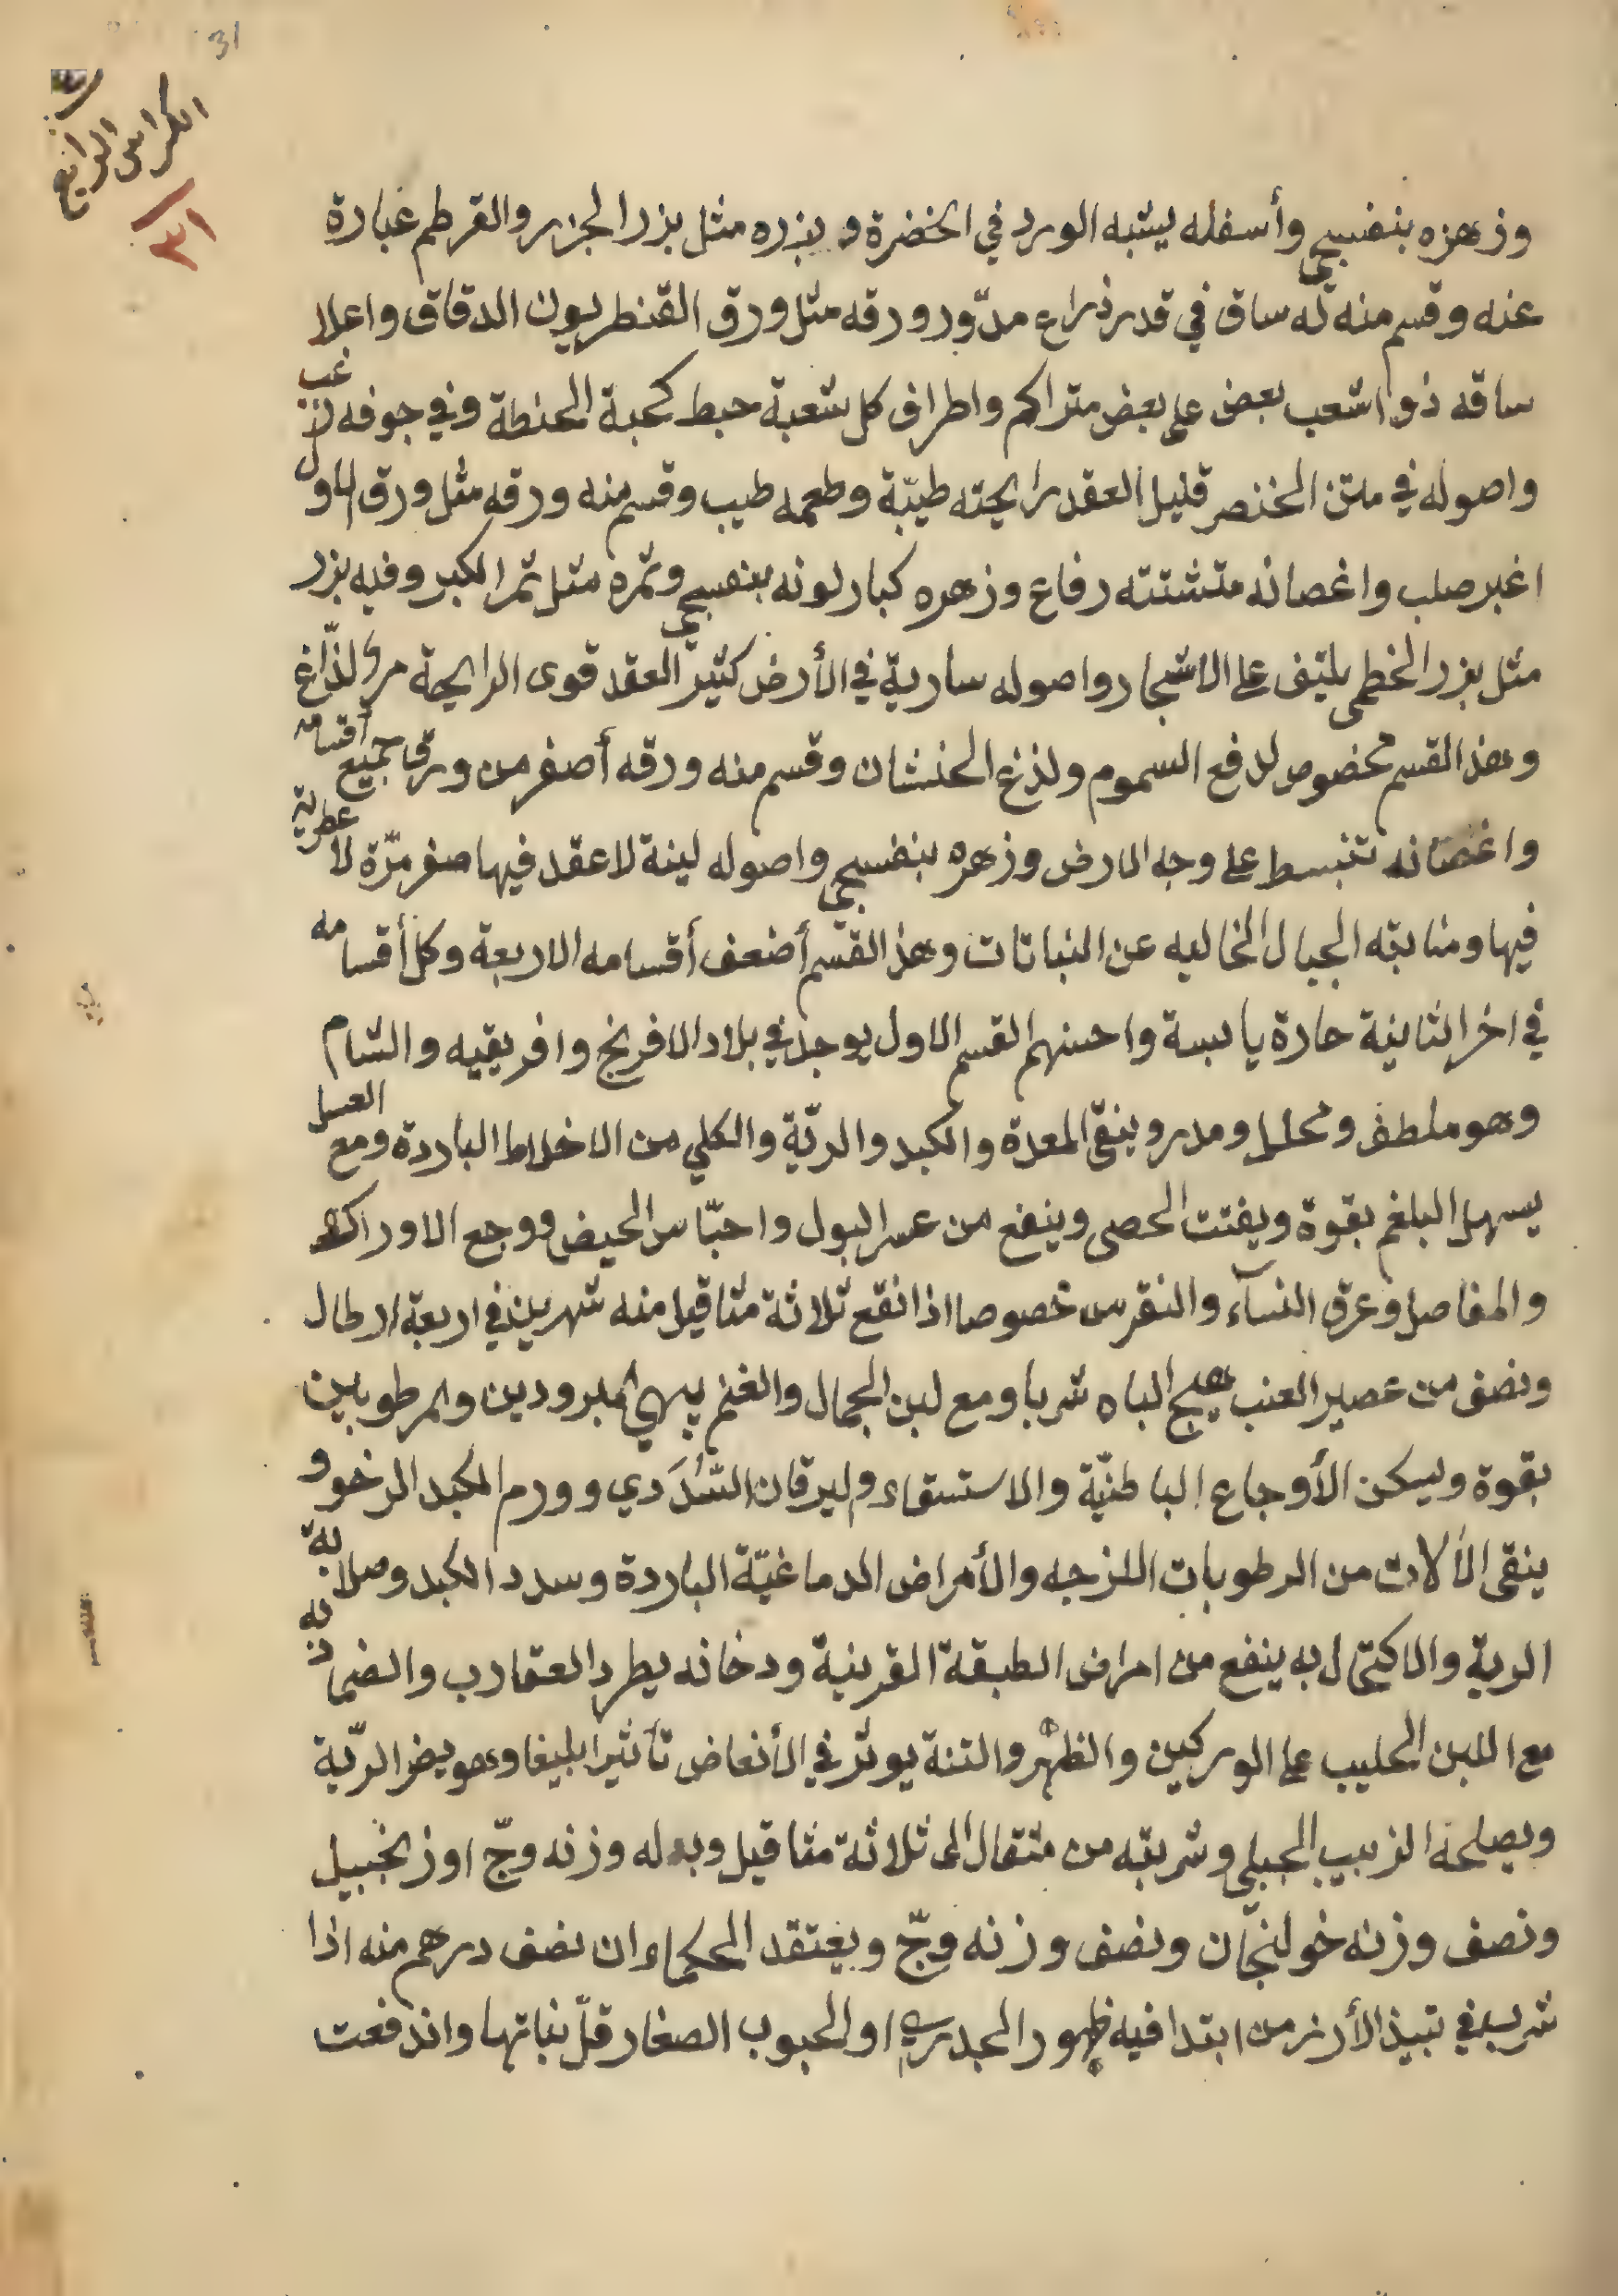 31
الكراس الرابع
٣١
وزهره بنفسجي وأسفله يشبه الورد في الخضرة وبزره مثل بزر الجزر والقرطم عبارة
عنه وقسم منه له ساق في قدر ذراع مدّور ورقه مثل ورق القنطريون الدقاق واعلا
ساقه ذو اشعب بعض على بعض متراكم واطراف كل شعبة حبط كحبة الحنطة وفي جوفه زغب
واصوله في متن الخنصر قليل العقد رايحته طيّبة وطعمه طيب وقسم منه ورقه مثل ورق الاول
اغبر صلب واغصانه متشتته رفاع وزهره كبار لونه بنفسجي وثمره مثل ثمر الكبر وفيه بزر
مثل بزر الخطمى يلتف على الاشجار واصوله سارية في الأرض كثير العقد قوى الرايحة مر لذّاغ
وهذ القسم مخصوص لدفع السموم ولذغ الحنشان وقسم منه ورقه أصغر من ورق جميع أقسامه
واغصانه تنبسط على وجه الارض وزهره بنفسجي واصوله لينة لاعقد فيها صفر مرّة لا عطرية
فيها ومنابته الجبال الخاليه عن النباتات وهذ القسم أضعف أقسامه الاربعة وكل أقسامه
في اخر الثانية حارة يابسة واحسنهم القسم الاول يوجد في بلاد الافرنج وافريقيه والشام
وهو ملطف ومحلل ومدر وينقّى المعدة والكبد والريّة والكلي من الاخلاط الباردة ومع العسل
يسهل البلغم بقوة ويفتت الحصى وينفع من عسر البول واحتباس الحيض ووجع الاوراك
والمفاصل وعرق النسآء والنقرس خصوصا اذا نقع ثلاثة مثاقيل منه شهرين في اربعة ارطال
ونصف من عصير العنب يهيج الباه شربا ومع لبن الجمال والغنم يهيئ المبرودين والمرطوبين
بقوة ويسكن الأوجاع الباطنيّة والاستسقاء واليرقان السُدَدي وورم الكبد الرخو و
ينقى الآلات من الرطوبات اللزجه والأمراض الدماغيّة الباردة وسدد الكبد وصلابة
الرية والاكتحال به ينفع من امراض الطبقة القرنية ودخانه يطرد العقارب والضماد به
مع اللبن الحليب على الوركين والظهر والتنة يوثر في الأنعاض تأثيرا بليغا وهو يضر الريّة
ويصلحه الزبيب الجبلي وشربته من مثقال الى ثلاثة مثاقيل وبدله وزنه وجّ اوزنجبيل
ونصف وزنه خولنجان ونصف وزنه وجّ ويعتقد الحكماء ان نصف درهم منه اذا
شرب في نبيذ الأرز من ابتدا فيه ظهور الجدري او الحبوب الصغار قلّ نباتها واندفعت